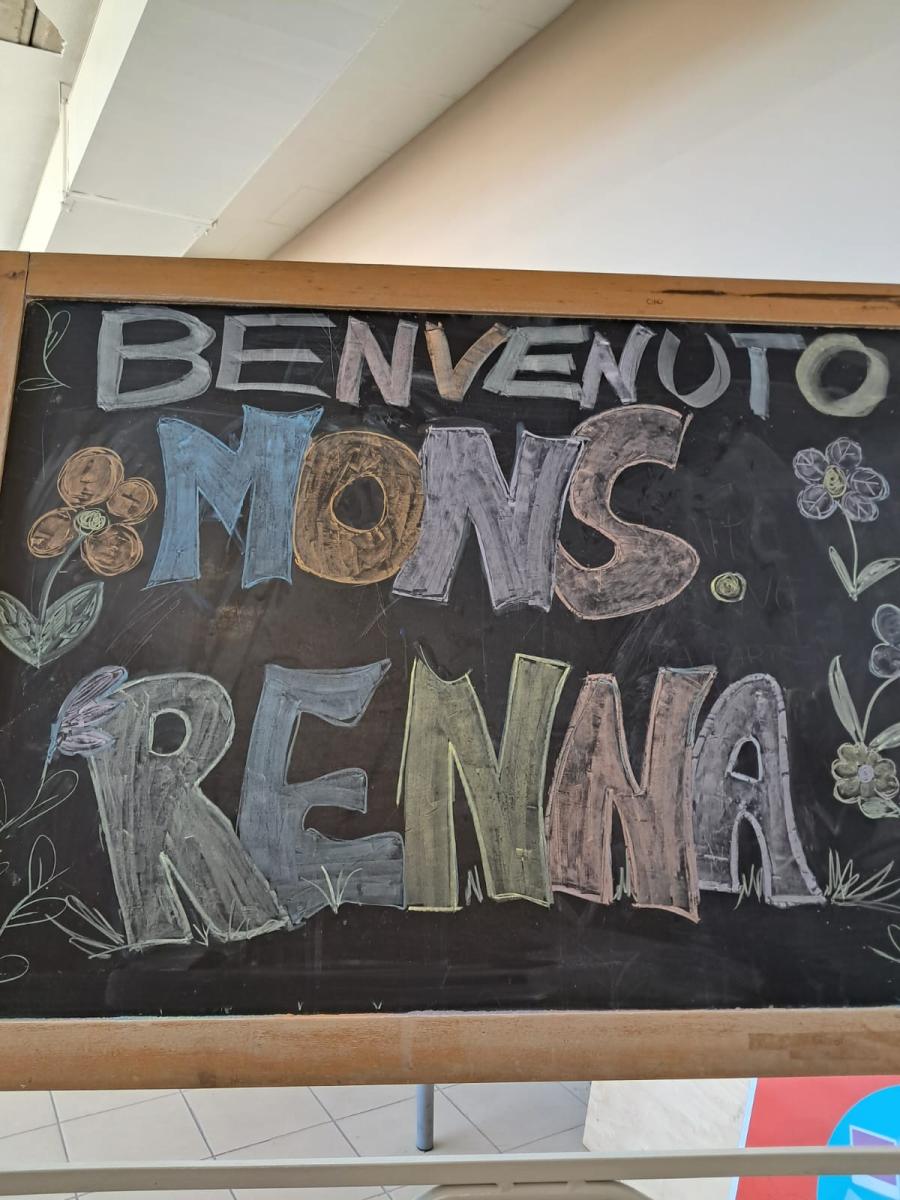 BENVENUTO
MONS.
RENNA